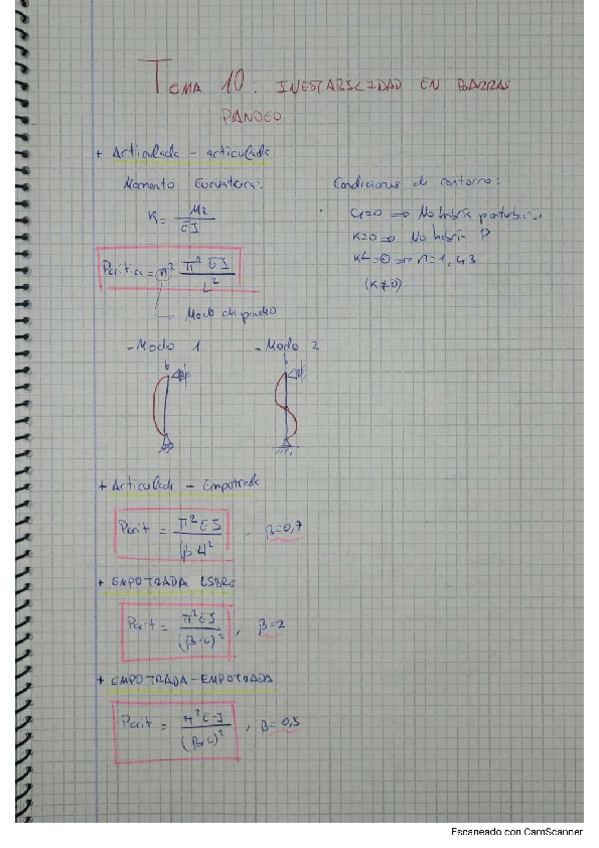 Tema 10: INESTABILIDAD EN BARRAS
PANDEO
+ Articulada - articulada
Momento Curvatura:
K = Mz / EI
Pcrítica = n² π² EI / L²
Modo de pandeo
- Modo 1
- Modo 2
Condiciones de contorno:
C1=0 ⇒ No habría
K=0 ⇒ No habría P
KL=0 ⇒ n=1,2,3
(K≠0)
+ Articulada - Empotrada
Pcrit = π² EI / (β·L)² , β=0,7
+ EMPOTRADA LIBRE
Pcrit = π² EI / (β·L)² , β=2
+ EMPOTRADA-EMPOTRADA
Pcrit = π² E·I / (β·L)² , β=0,5
Escaneado con CamScanner